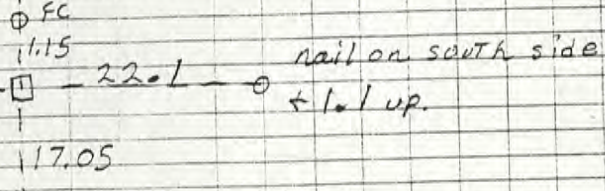 FC
1.15
22.1
nail on south side
+ 1.1 up.
17.05